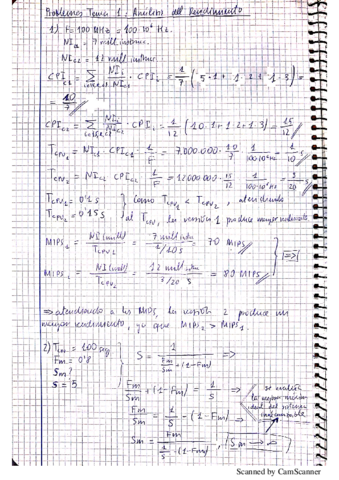 Problemas Tema 1: Análisis del Rendimiento
1) F = 100 MHz = 100·10⁶ Hz.
NI_C1 = 7 mill. instrucc.
NI_C2 = 12 mill. instrucc
CPI_C1 = Σ NI_i/NI_C1 · CPI_i = 1/7 (5·1 + 1·2 + 1·3) =
= 10/7
CPI_C2 = Σ NI_i/NI_C2 · CPI_i = 1/12 (10·1 + 1·2 + 1·3) = 15/12
T_CPU1 = NI_C1 · CPI_C1 · 1/F = 7.000.000 · 10/7 · 1/100·10⁶ Hz = 1/10 s
T_CPU2 = NI_C2 · CPI_C2 · 1/F = 12000.000 · 15/12 · 1/100·10⁶ Hz = s
T_CPU1 = 0'1 s } Como T_CPU1 < T_CPU2, atendiendo
T_CPU2 = 0'15 s } al T_CPU, la versión 1 produce mayor rendimiento
MIPS_1 = NI(mill)/T_CPU1 = 7 mill instr/1/10 s = 70 MIPS
MIPS_2 = NI(mill)/T_CPU2 = 12 mill instr/3/20 s = 80 MIPS
⇒ atendiendo a los MIPS, la versión 2 produce un
mayor rendimiento, ya que MIPS_2 > MIPS_1
2) = 100 seg
Fm = 0'8
Sm?
S = 5
S = 1/(Fm/Sm + (1-Fm)) ⇒
Fm/Sm + (1-Fm) = 1/S ⇒
Fm/Sm = 1/S - (1-Fm) ⇒
Sm = Fm/(1/S - (1-Fm)), (Sm → ∞)
la mejor
ideal del
Scanned by CamScanner